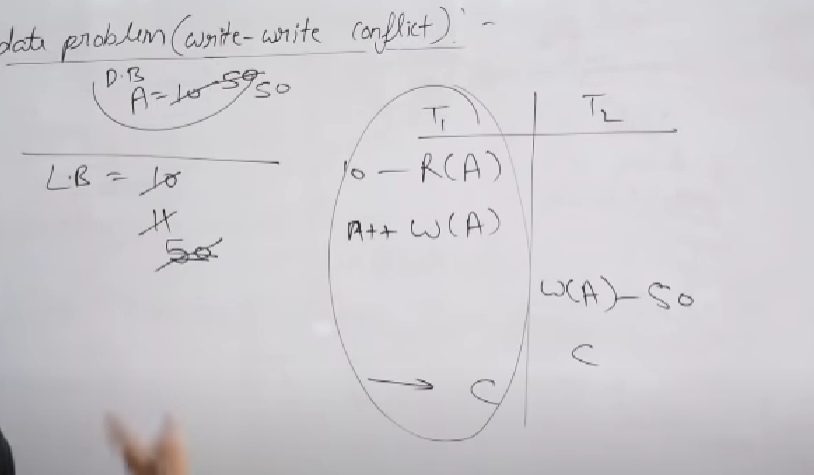 data problem (write-write conflict): -
D.B
A = 10 50 50
L.B = 10
11
50
T1 T2
10 — R(A)
A++ W(A)
W(A) - 50
C
→ C